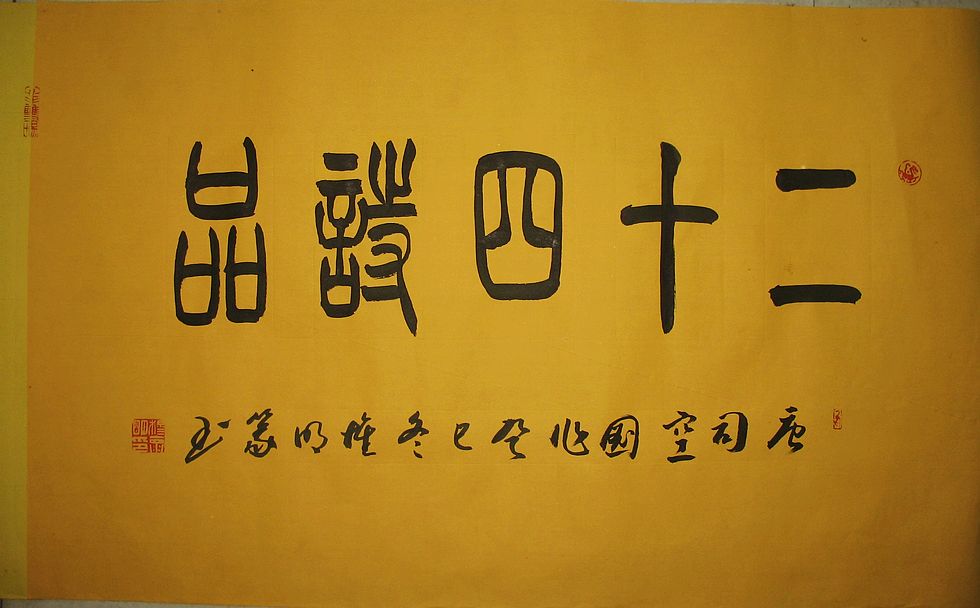 二十四詩品
唐司空圖作癸巳冬惟明篆书